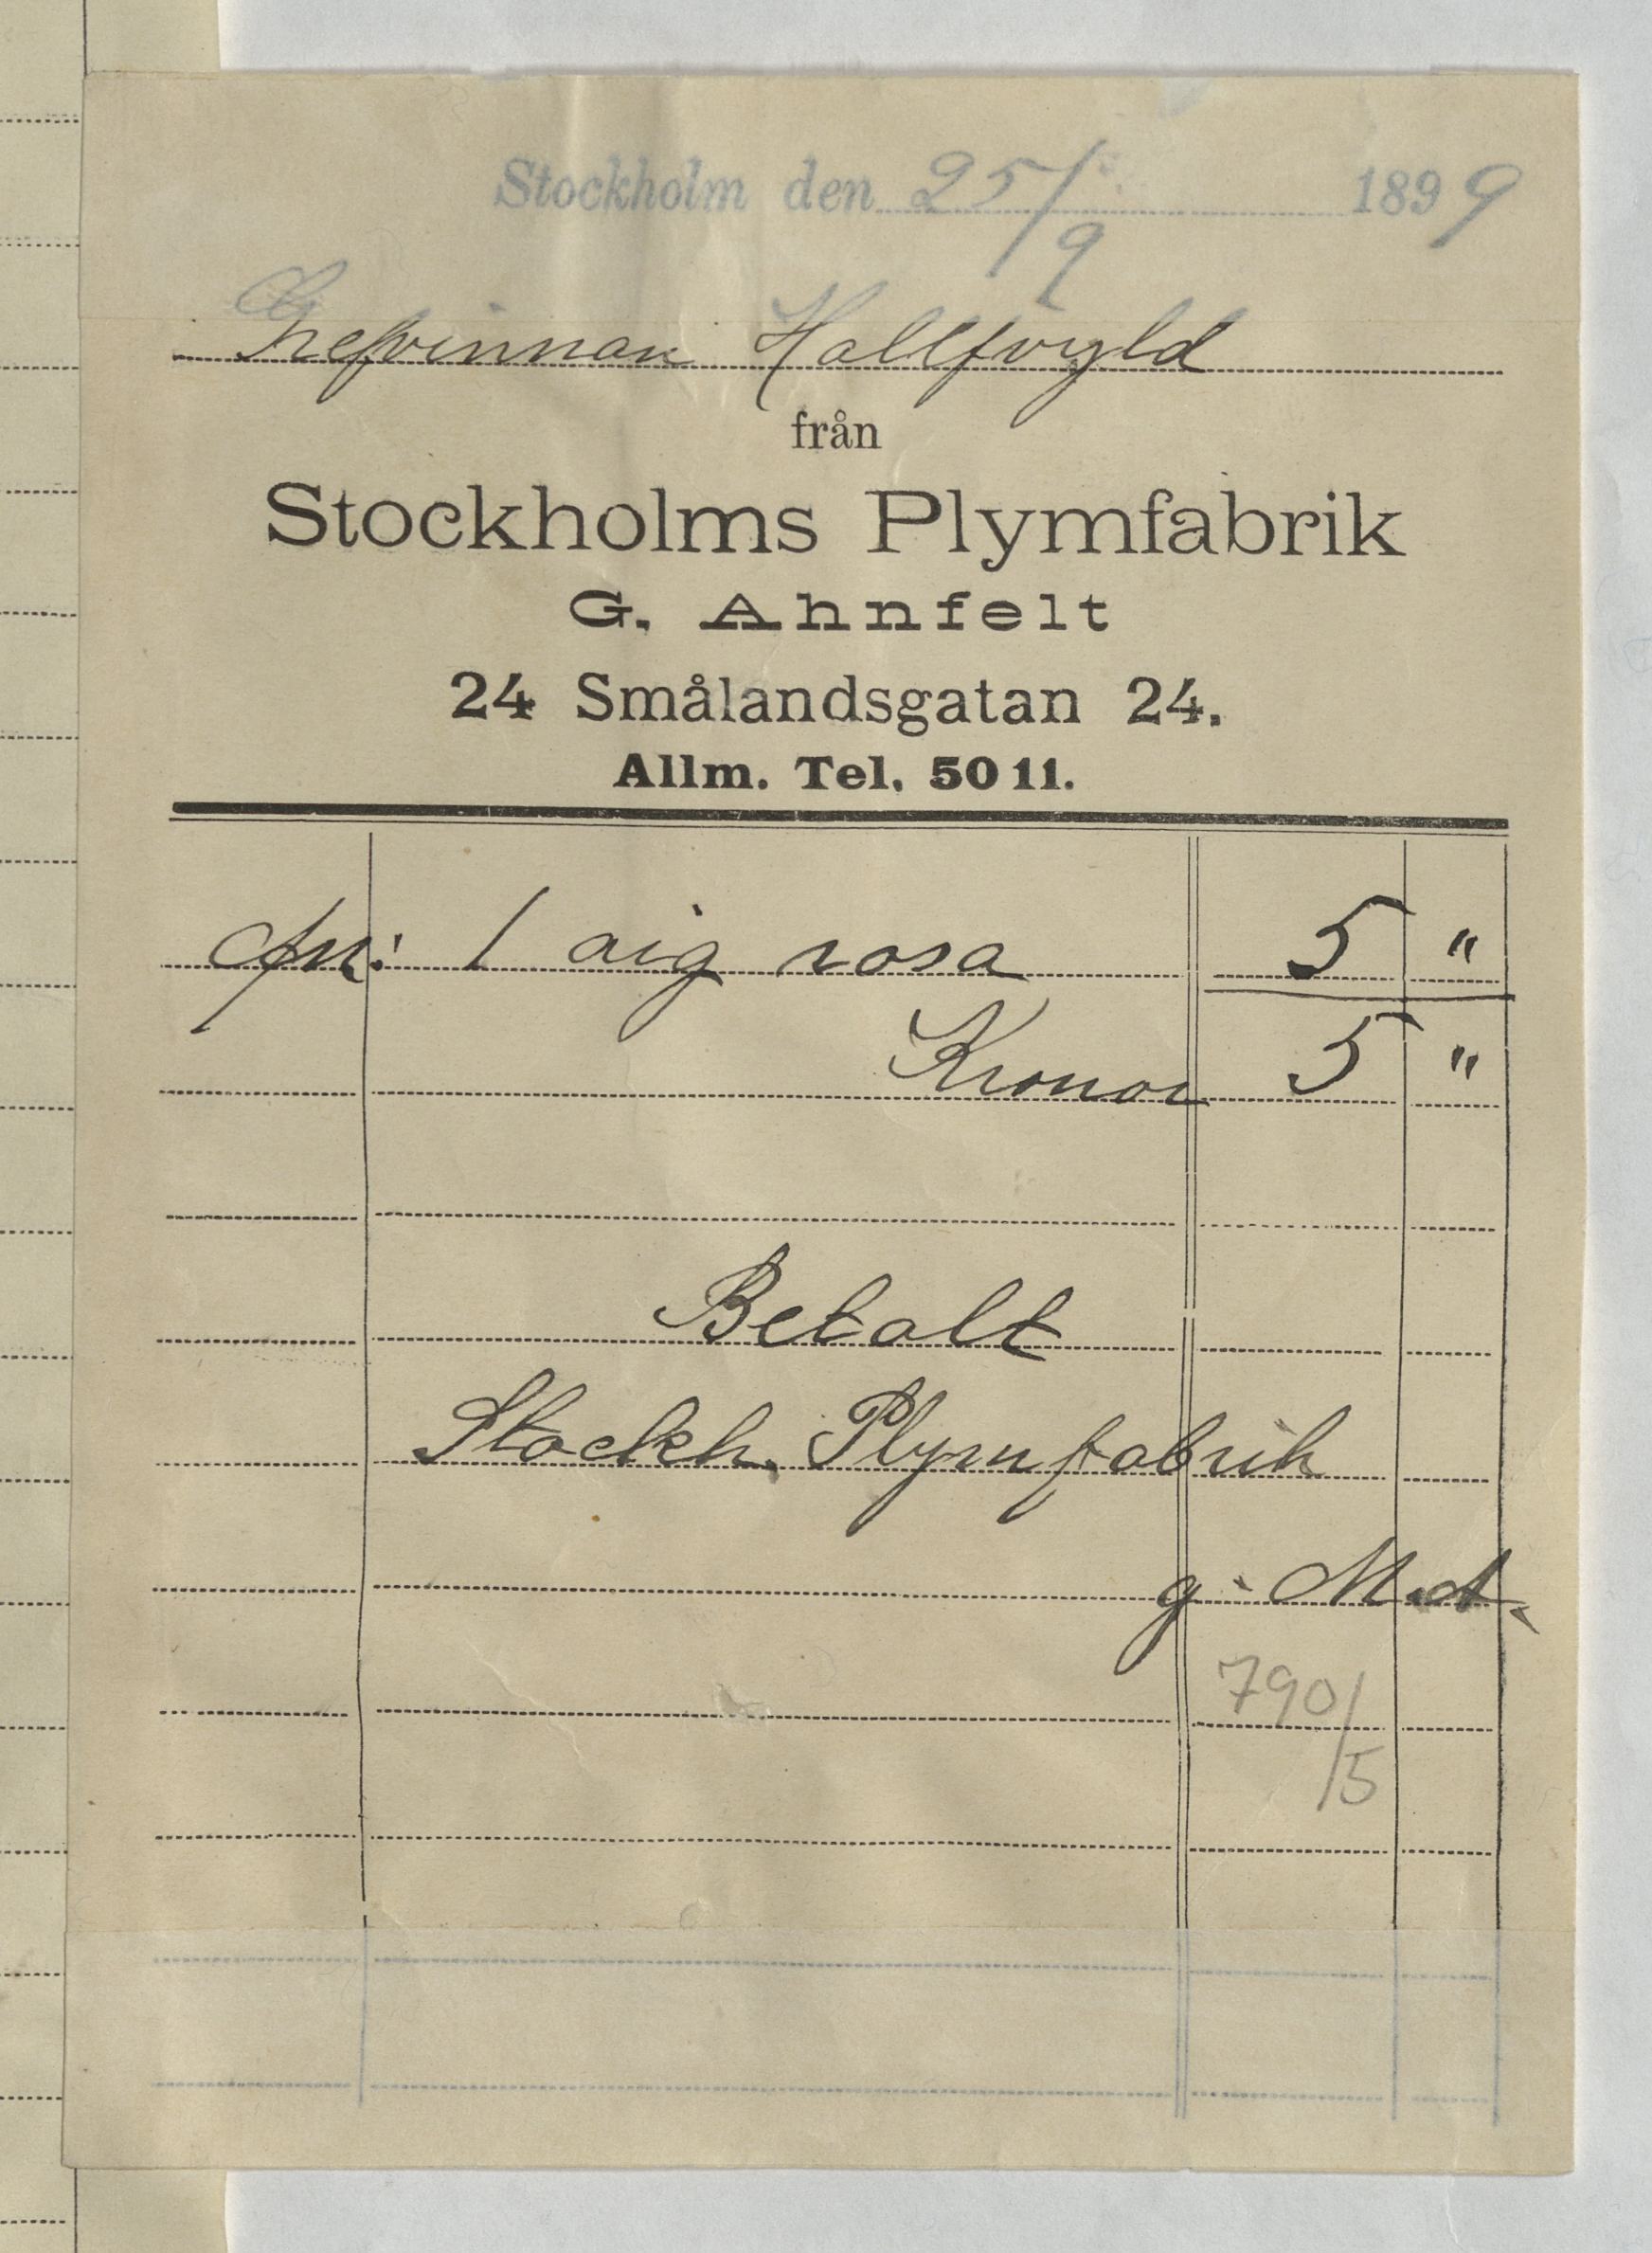 Stockholm den 25/9 1899
Grefvinnan Hallfvyld
från
Stockholms Plymfabrik
G. Ahnfelt
24 Smålandsgatan 24.
Allm. Tel. 5011.
1 aig rosa 5 "
Kronor 5 "
Betalt
Stockh. Plymfabrik
g. M. A.
790/5